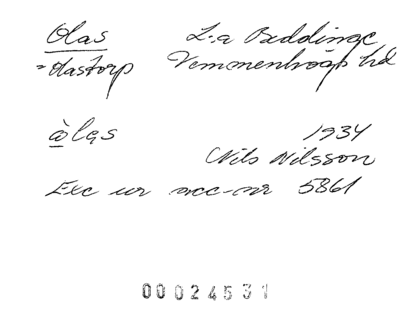 Olas L:a Beddinge
=Olastorp Vemmenhögs hd
òlas 1934
Nils Nilsson
Exc ur acc-nr 5861
00024531